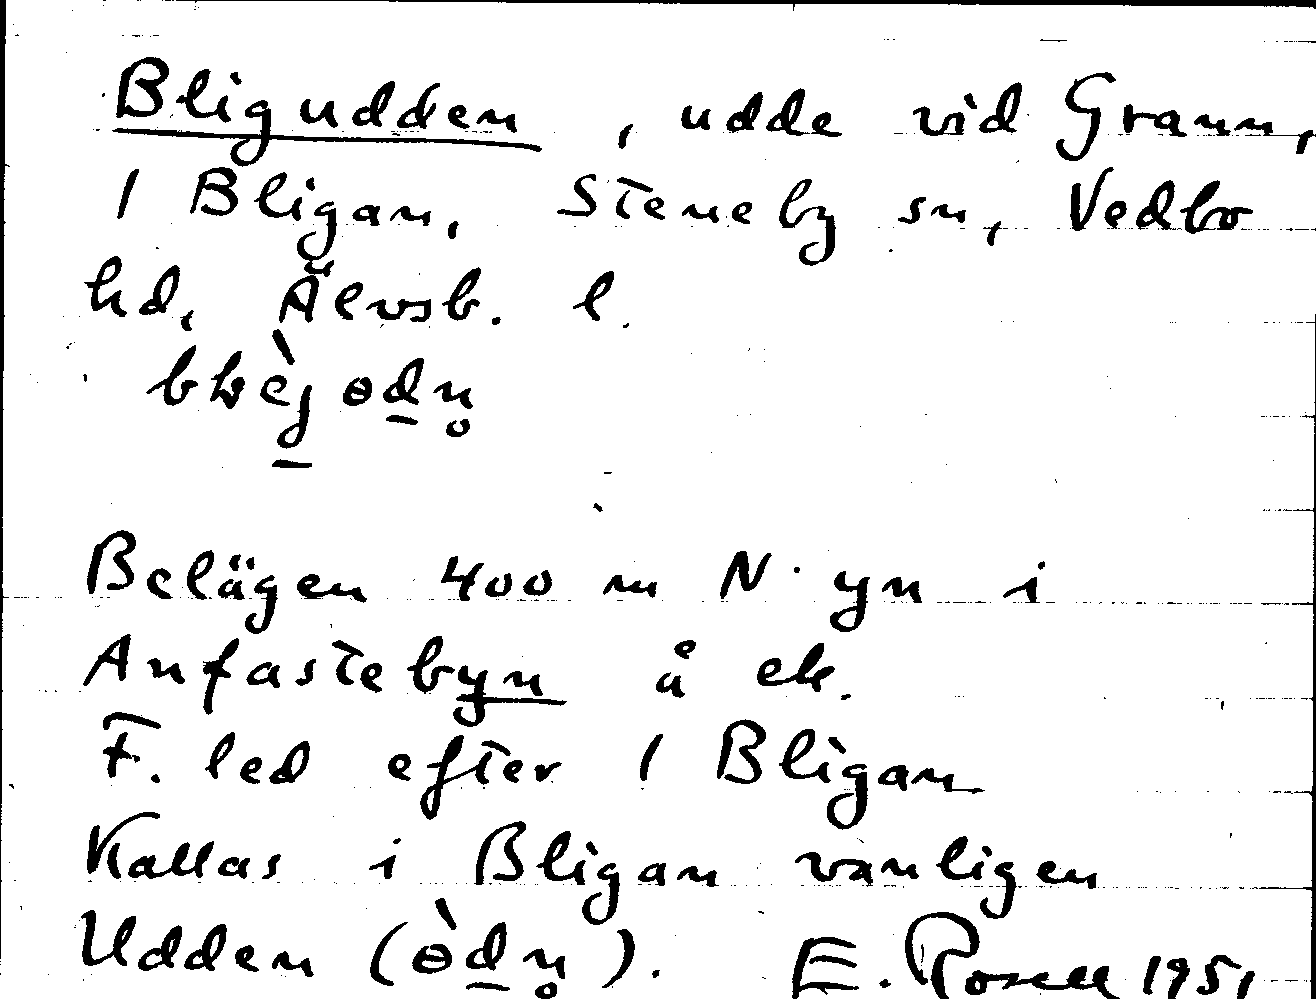 Bligudden, udde vid Grann,
1 Bligan, Steneby sn, Vedbo
hd, Älvsb. l.
Belägen 400 m N. yn i
Anfastebyn å ek.
F. led efter 1 Bligan
Kallas i Bligan vanligen
Udden (ɵ̀dn̥). E. Rosell 1951